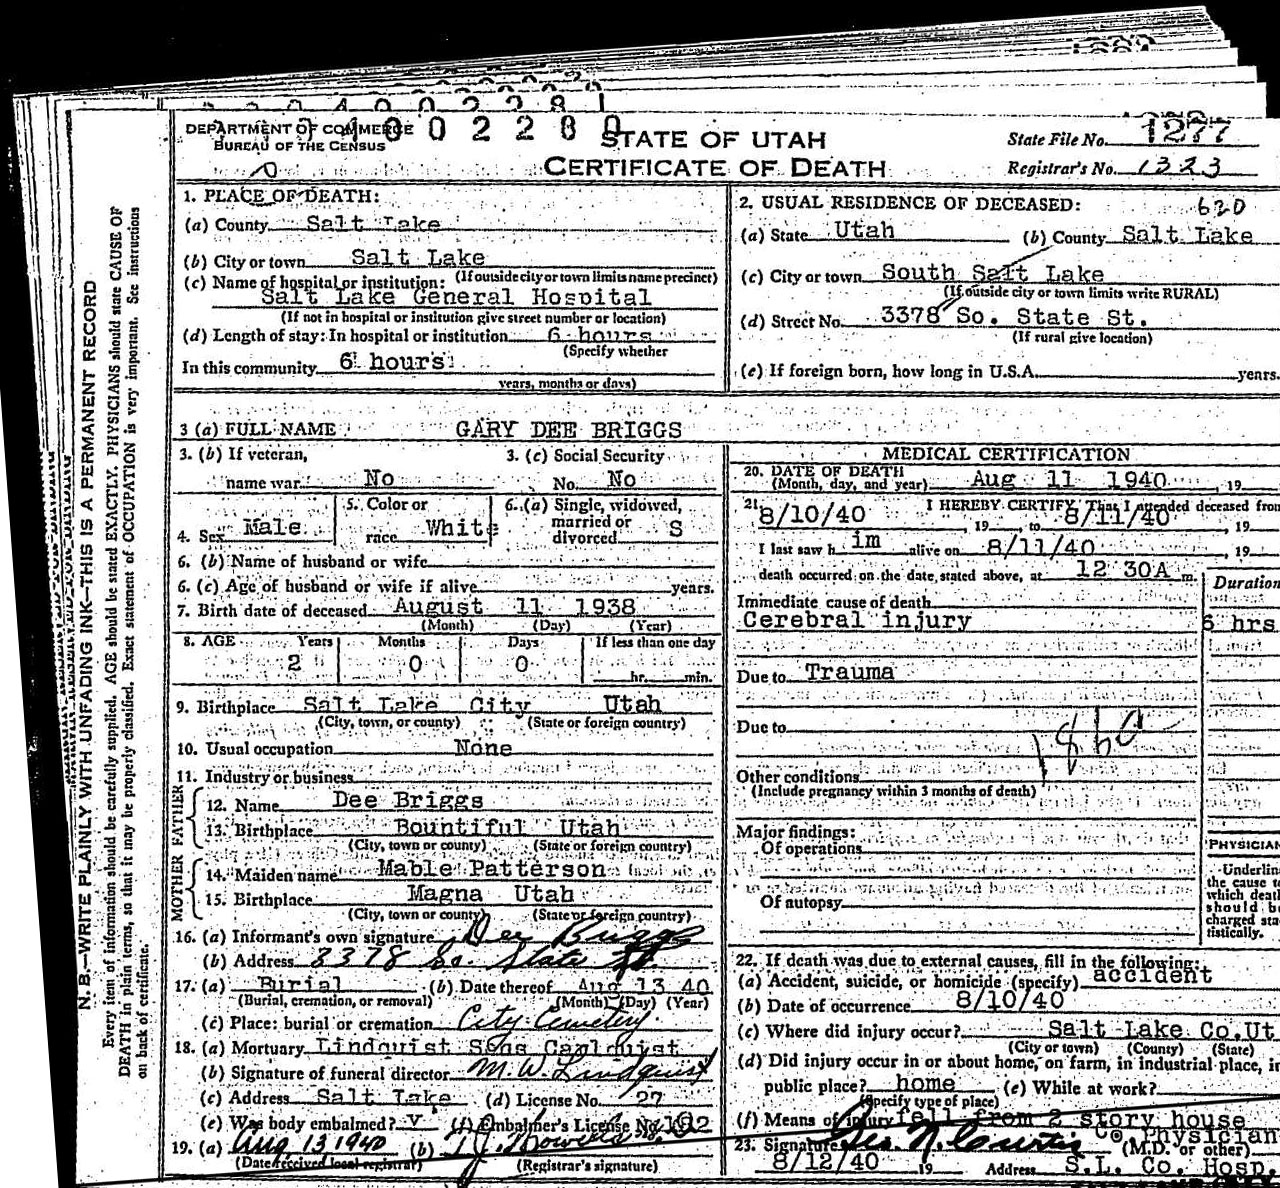 1277
DEPARTMENT OF COMMERCE
BUREAU OF THE CENSUS
STATE OF UTAH
CERTIFICATE OF DEATH
State File No. 1277
Registrar's No. 1323
N. B.—WRITE PLAINLY WITH UNFADING INK—THIS IS A PERMANENT RECORD
Every item of information should be carefully supplied. AGE should be stated EXACTLY. PHYSICIANS should state CAUSE OF
DEATH in plain terms, so that it may be properly classified. Exact statement of OCCUPATION is very important. See instructions
on back of certificate.
1. PLACE OF DEATH:
(a) County Salt Lake
(b) City or town Salt Lake
(If outside city or town limits name precinct)
(c) Name of hospital or institution:
Salt Lake General Hospital
(If not in hospital or institution give street number or location)
(d) Length of stay: In hospital or institution 6 hours
(Specify whether
In this community 6 hours
years, months or days)
2. USUAL RESIDENCE OF DECEASED: 620
(a) State Utah (b) County Salt Lake
(c) City or town South Salt Lake
(If outside city or town limits write RURAL)
(d) Street No. 3378 So. State St.
(If rural give location)
(e) If foreign born, how long in U.S.A. years.
3 (a) FULL NAME GARY DEE BRIGGS
3. (b) If veteran,
name war No
3. (c) Social Security
No. No
4. Sex Male
5. Color or
race White
6. (a) Single, widowed,
married or
divorced S
6. (b) Name of husband or wife
6. (c) Age of husband or wife if alive years.
7. Birth date of deceased August 11 1938
(Month) (Day) (Year)
8. AGE Years Months Days If less than one day
2 0 0 hr. min.
9. Birthplace Salt Lake City Utah
(City, town, or county) (State or foreign country)
10. Usual occupation None
11. Industry or business
FATHER
12. Name Dee Briggs
13. Birthplace Bountiful Utah
(City, town or county) (State or foreign country)
MOTHER
14. Maiden name Mable Patterson
15. Birthplace Magna Utah
(City, town or county) (State or foreign country)
16. (a) Informant's own signature Dee Briggs
(b) Address 3378 So. State St.
17. (a) Burial (b) Date thereof Aug 13 40
(Burial, cremation, or removal) (Month) (Day) (Year)
(c) Place: burial or cremation City Cemetery
18. (a) Mortuary Lindquist Sons Carlquist
(b) Signature of funeral director M. W. Lindquist
(c) Address Salt Lake (d) License No. 27
(e) Was body embalmed? (f) Embalmer's License No.
19. (a) Aug. 13 1940 (b)
(Date received local registrar) (Registrar's signature)
MEDICAL CERTIFICATION
20. DATE OF DEATH
(Month, day, and year) Aug 11 1940, 19
21. I HEREBY CERTIFY, That I attended deceased from
8/10/40, 19 to 8/11/40, 19
I last saw him alive on 8/11/40, 19
death occurred on the date stated above, at 12 30A m.
Duration
Immediate cause of death
Cerebral injury 6 hrs
Due to Trauma
Due to
186a
Other conditions
(Include pregnancy within 3 months of death)
Major findings:
Of operations
Of autopsy
PHYSICIAN
Underline
the cause to
which death
should be
charged sta-
tistically.
22. If death was due to external causes, fill in the following:
(a) Accident, suicide, or homicide (specify) accident
(b) Date of occurrence 8/10/40
(c) Where did injury occur? Salt Lake Co. Ut
(City or town) (County) (State)
(d) Did injury occur in or about home, on farm, in industrial place, in
public place? home (e) While at work?
(Specify type of place)
(f) Means of injury fell from 2 story house
23. Signature Geo. N. Curtis Co. Physician
(M.D. or other)
8/12/40 19 Address S.L. Co. Hosp.